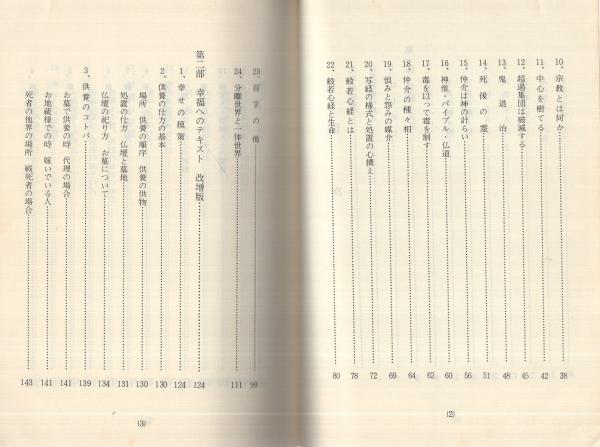 10、宗教とは何か 38
11、中心を樹てる 42
12、超過集団は破滅する 45
13、鬼退治 48
14、死後の霊 51
15、仲介は神の計らい 56
16、神惟・バイブル・仏道 60
17、毒を以って毒を制す 62
18、仲介の種々相 64
19、恨みと怨みの媒介 69
20、写経の様式と処置の心構え 72
21、般若心経とは 78
22、般若心経と生命 80
(2)
23、百字の偈 99
24、分離世界と一体世界 111
第二部 幸福へのテキスト 改増版 124
1、幸せの模策 124
2、供養の仕方の基本 130
場所 供養の順序 供養の供物 130
処置の仕方 仏壇と墓地 131
仏壇の祀り方 お墓について 134
3、供養のコトバ 139
お墓で供養の時 代理の場合 141
お地蔵様での時 嫁いでいる人 141
死者の他界の場所 戦死者の場合 143
(3)